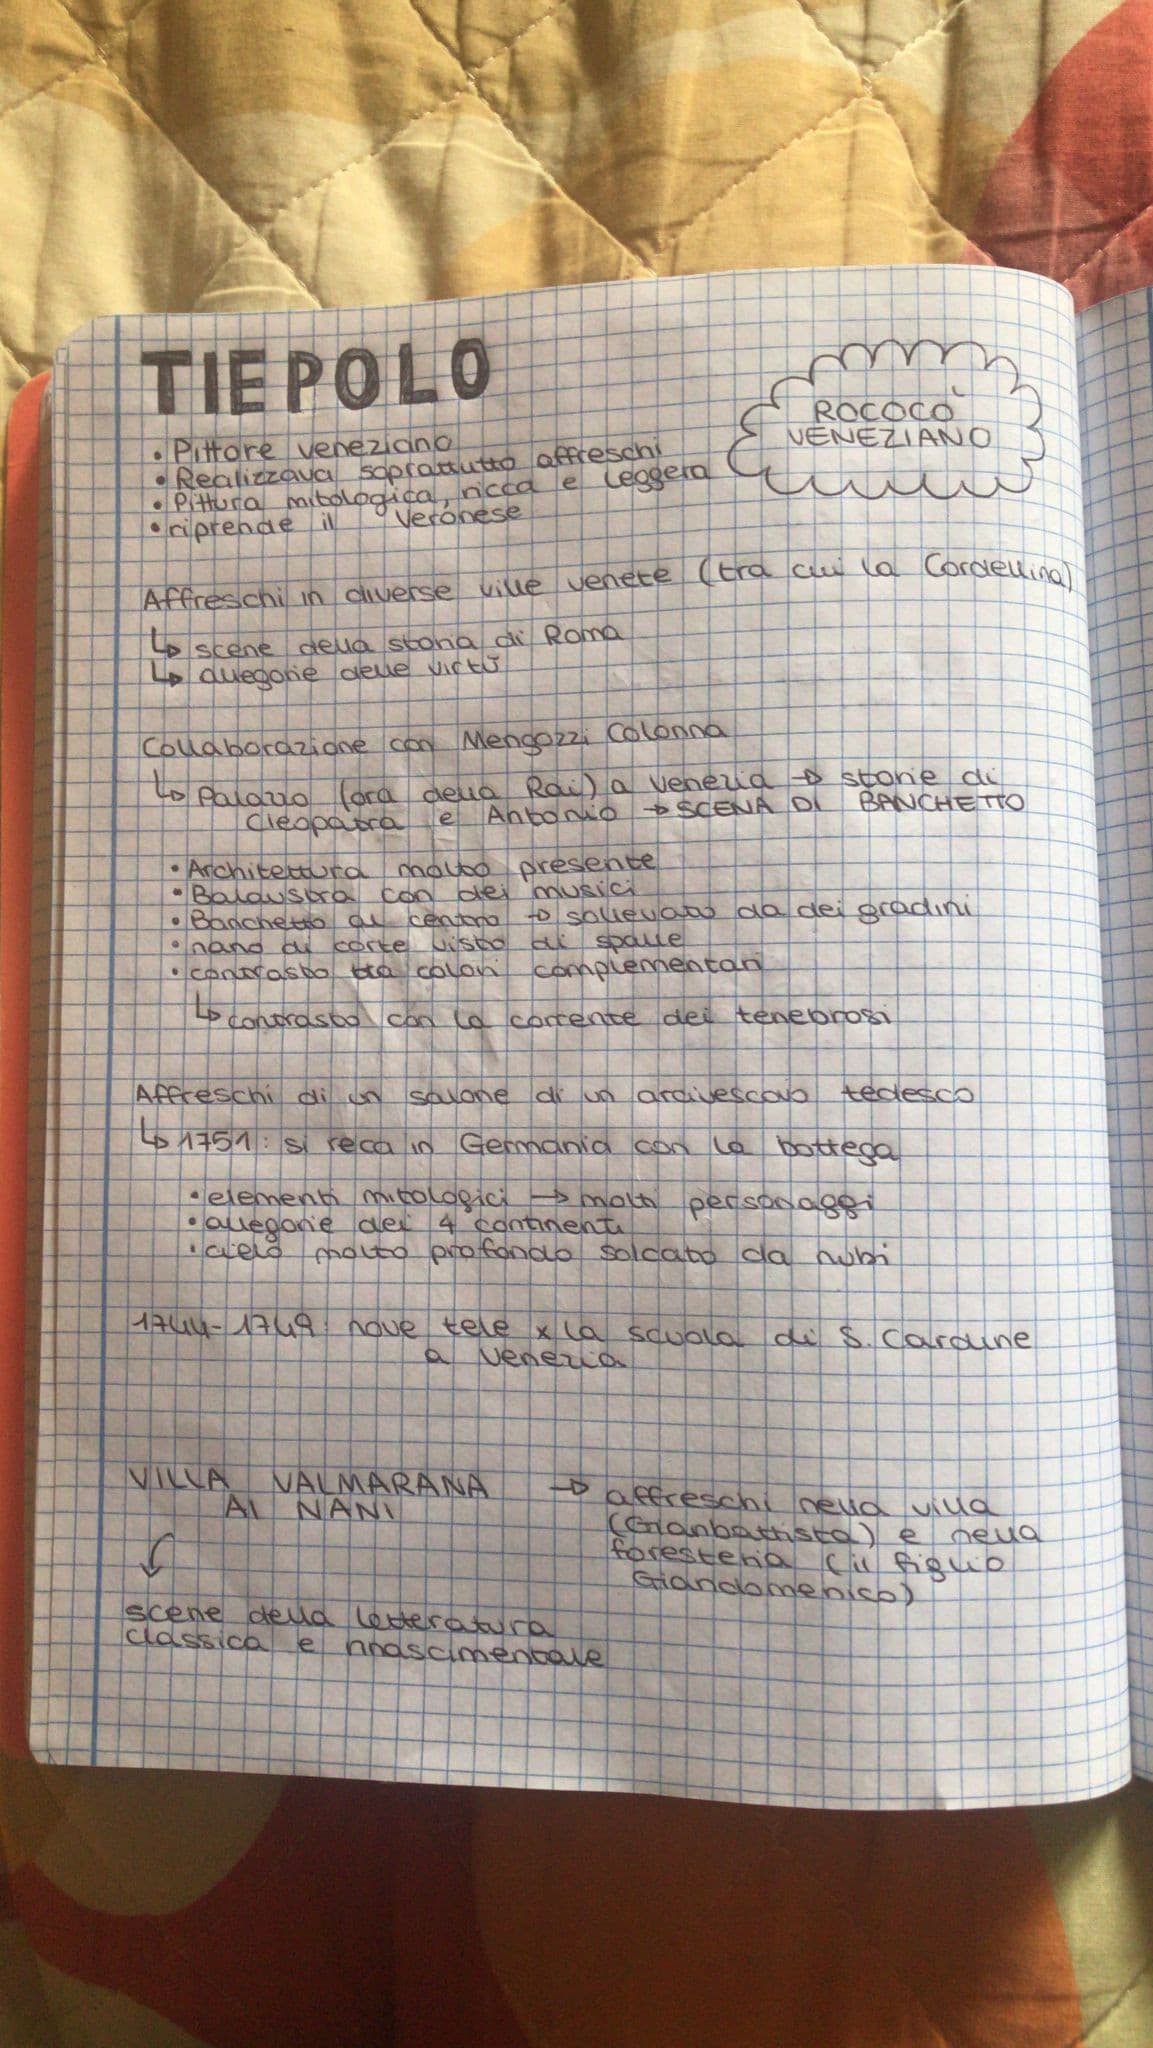 TIEPOLO
ROCOCÒ
VENEZIANO
• Pittore veneziano
• Realizzava soprattutto affreschi
• Pittura mitologica, ricca e leggera
• riprende il Veronese
Affreschi in diverse ville venete (tra cui la Cordellina)
↳ scene della storia di Roma
↳ allegorie delle virtù
Collaborazione con Mengozzi Colonna
↳ Palazzo (ora della Rai) a Venezia → storie di
Cleopatra e Antonio → SCENA DI BANCHETTO
• Architettura molto presente
• Balaustra con dei musici
• Banchetto al centro → sollevato da dei gradini
• nano di corte visto di spalle
• contrasto tra colori complementari
↳ contrasto con la corrente dei tenebrosi
Affreschi di un salone di un arcivescovo tedesco
↳ 1751: si reca in Germania con la bottega
• elementi mitologici → molti personaggi
• allegorie dei 4 continenti
• cielo molto profondo solcato da nubi
1744-1749: nove tele x la scuola di S. Carmine
a Venezia
VILLA VALMARANA → affreschi nella villa
AI NANI (Gianbattista) e nella
foresteria (il figlio
Giandomenico)
scene della letteratura
classica e rinascimentale